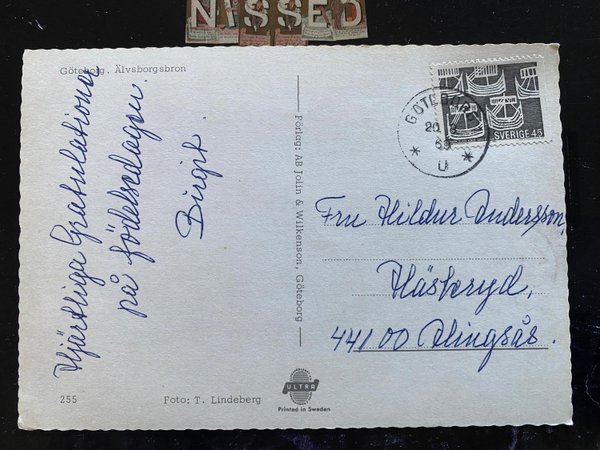 NISSED
Göteborg. Älvsborgsbron
Hjärtliga Gratulationer
på födelsedagen.
Birgit.
Förlag: AB Jolin & Wilkenson, Göteborg
GÖTEBORG
20
69
U
SVERIGE 45
Fru Hildur Andersson,
Hästeryd,
44100 Alingsås.
255
Foto: T. Lindeberg
ULTRA
Printed in Sweden